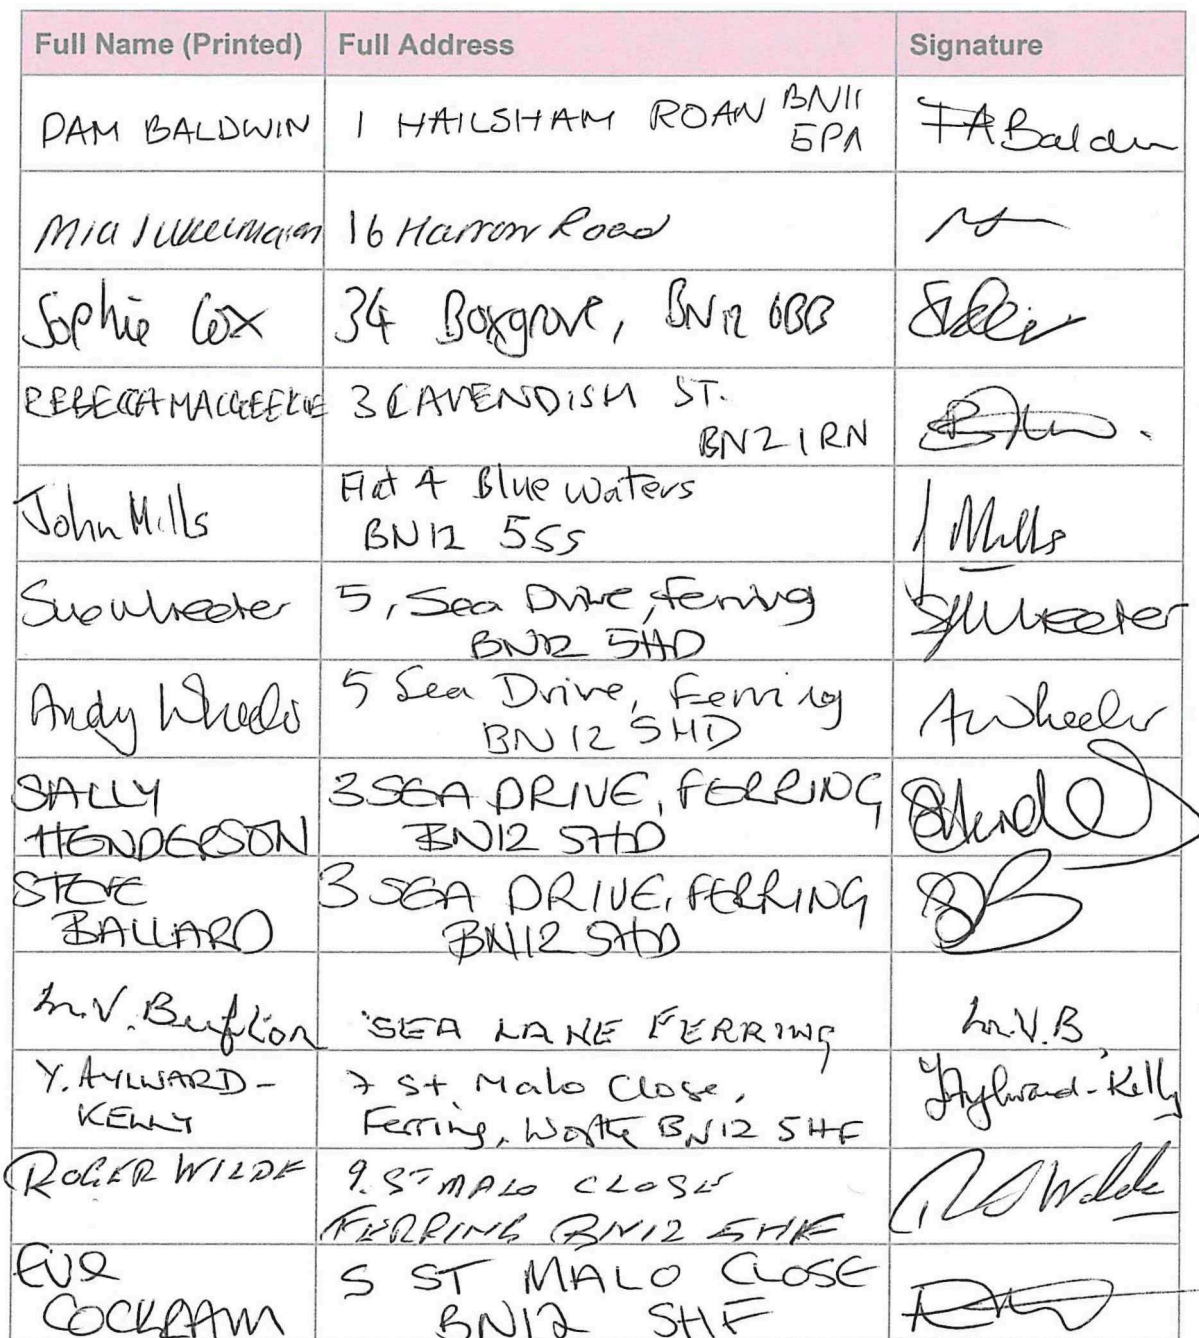 Full Name (Printed) Full Address Signature
PAM BALDWIN 1 HAILSHAM ROAN BN11
5PA
PABaldwin
Mia 16 Harrow Road
Sophie Cox 34 Boxgrove, BN12 6BB
REBECCA 3 CAVENDISH ST.
BN2 1RN
John Mills Flat 4 Blue Waters
BN12 5SS
J Mills
Sue Wheeler 5, Sea Drive, Ferring
BN12 5HD
SJWheeler
Andy Wheeler 5 Sea Drive, Ferring
BN12 5HD
A Wheeler
SALLY
HENDERSON
3 SEA DRIVE, FERRING
BN12 5HD
STEVE
BALLARD
3 SEA DRIVE, FERRING
BN12 5HD
SB
M.V. Bufton SEA LANE FERRING M.V.B
Y. AYLWARD-
KELLY
7 St. Malo Close,
Ferring, BN12 5HF
YAylward-Kelly
ROGER WILDE 9. ST MALO CLOSE
FERRING BN12 5HF
R S Wilde
EVE
COCKRAM
5 ST MALO CLOSE
BN12 5HF